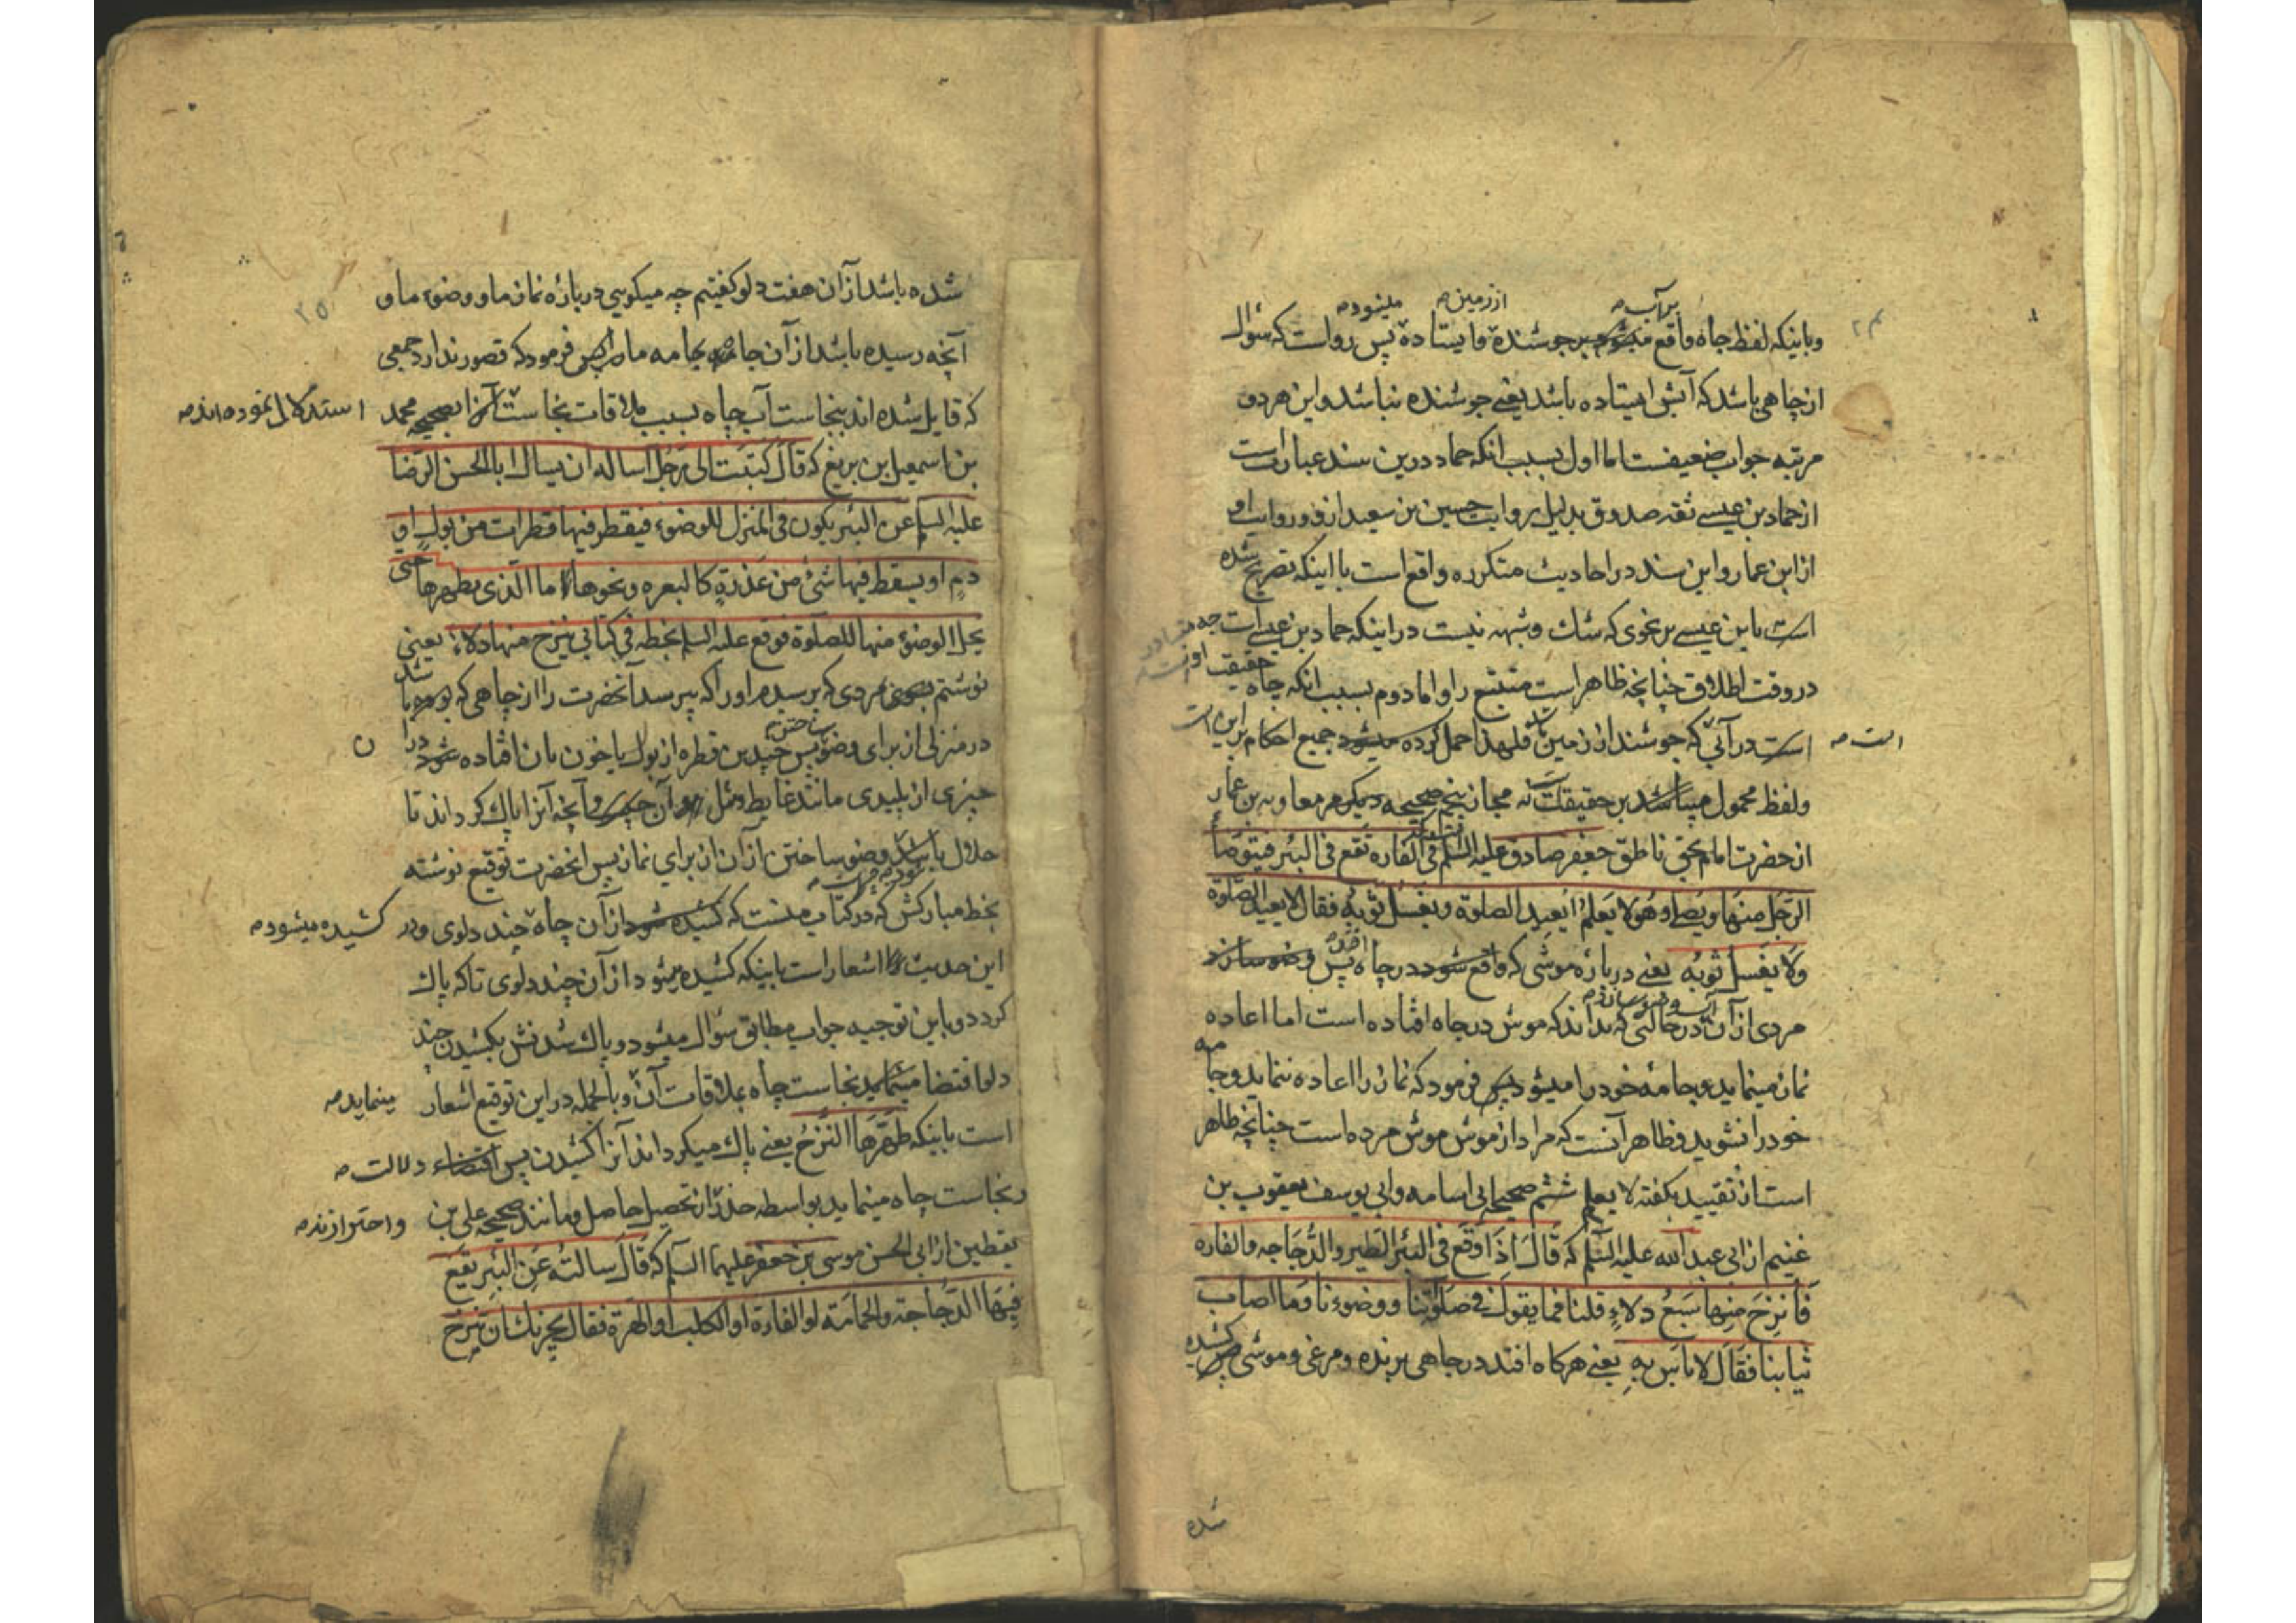 وباینکه لفظ چاه واقع میشود بر جوشنده وایستاده پس رواست که سئوال
بر آب
از زمین
میشود
از چاهی باشد که آبش ایستاده باشد یعنی جوشنده نباشد واین هر دو
مرتبه جواب ضعیفست اما اول بسبب انکه حماد درین سند عبارتست
از حماد بن عیسی ثقه صدوق بدلیل روایت حسین بن سعید ازو وروایت او
از ابن عمار واین سند در احادیث متکرره واقع است با اینکه تصریح شده
است باین عیسی بر نحوی که شك وشبهه نیست در اینکه حماد بن عیسی است چه
در وقت اطلاق چنانچه ظاهر است متتبع را واما دوم بسبب انکه چاه حقیقت
است در آبی که جوشند از زمین فلهذا حمل کرده میشود جمیع احکام بر این
است
ولفظ محمول میباشد بر حقیقت نه مجاز پنجم صحیحه دیگر معاویه بن عمار
از حضرت امام بحق ناطق جعفر صادق علیه السلم فی الفاره تقع فی البئر فیتوضأ
الرجل منها ویصلی وهو لا یعلم ایعید الصلوة ویغسل ثوبه فقال لا یعید الصلوة
ولا یغسل ثوبه یعنی درباره موشی که واقع شود در چاه پس وضو سازد
افتد
مردی از آن در حالتی که نداند که موش در چاه افتاده است اما اعاده
نماز مینماید وجامه خود را میشوید پس فرمود که نماز را اعاده ننماید وجامه
خود را نشوید وظاهر آنست که مراد از موش موش مرده است چنانچه ظاهر
است از تقیید بکفته لا یعلم ششم صحیحه ابی اسامه وابی یوسف یعقوب بن
عثیم از ابی عبد الله علیه السلم که قال اذا وقع فی البئر الطیر والدجاجه والفاره
فانزح منها سبع دلاء قلنا فما یقول فی صلوتنا ووضوءنا وما اصاب
ثیابنا فقال لا باس به یعنی هرکاه افتد در چاهی پرنده ومرغی وموشی پس کشیده
شده
شده باشد از آن هفت دلو کفتیم چه میکویی درباره نماز ما ووضوء ما و
آنچه رسیده باشد از آن بجامه ما پس فرمود که قصور ندارد جمعی
که قایل شده اند بنجاست آب چاه بسبب ملاقات نجاست بصحیحه محمد
استدلال نموده اند
بن اسمعیل بن بزیع که قال کتبت الی رجل اساله ان یسال ابا الحسن الرضا
علیه السلم عن البئر یکون فی المنزل للوضوء فیقطر فیها قطرات من بول او
دم او یسقط فیها شئ من عذرة کالبعره ونحوها ما الذی یطهرها حتی
یحل الوضوء منها للصلوة فوقع علیه السلم بخطه فی کتابی ینزح منها دلاء یعنی
نوشتم بسوی مردی که پرسیدم او را که بپرسد آنحضرت را از چاهی که بوده باشد
در منزلی از برای وضو پس چندین قطره از بول یا خون بآن افتاده شود در آن
ساختن
چیزی از پلیدی مانند غایط ومثل آن وآنچه آنرا پاك کرداند تا
حلال باشد وضو ساختن از آن از برای نماز پس انحضرت توقیع نوشته
بخط مبارکش که در کتاب منست که کشیده شود از آن چاه چند دلوی ودر
کشیده میشود
این حدیث اشعار است باینکه کشیده میشود از آن چند دلوی تا که پاك
کردد وباین توجیه جواب مطابق سؤال میشود وپاك شدنش بکشیدن چند
دلو اقتضا مینماید نجاست چاه بملاقات آن وبالجمله در این توقیع اشعار
مینماید
است باینکه طهرها النزح یعنی پاك میکرداند آنرا کشیدن پس اقتضاء
دلالت
نجاست چاه مینماید بواسطه حذر از تحصیل حاصل ومانند صحیحه علی بن
واحتراز
یقطین از ابی الحسن موسی بن جعفر علیهما السلم که قال سالته عن البئر یقع
فیها الدجاجة والحمامة او الفارة او الکلب او الهرة فقال یجزیك ان تنزح